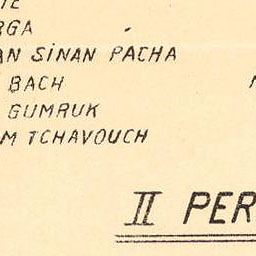 RGA
AN SİNAN PACHA
BACH
GUMRUK
M TCHAVOUCH
II PER